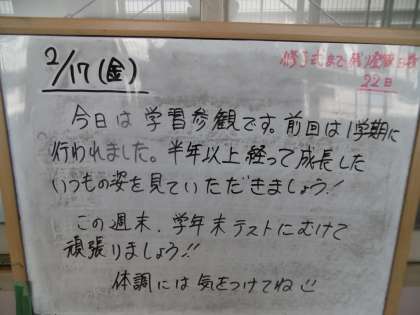 2/17(金)
修了式まで残り登校日数
22日
今日は学習参観です。前回は1学期に
行われました。半年以上経って成長した
いつもの姿を見ていただきましょう!
この週末、学年末テストにむけて
頑張りましょう!!
体調には気をつけてね